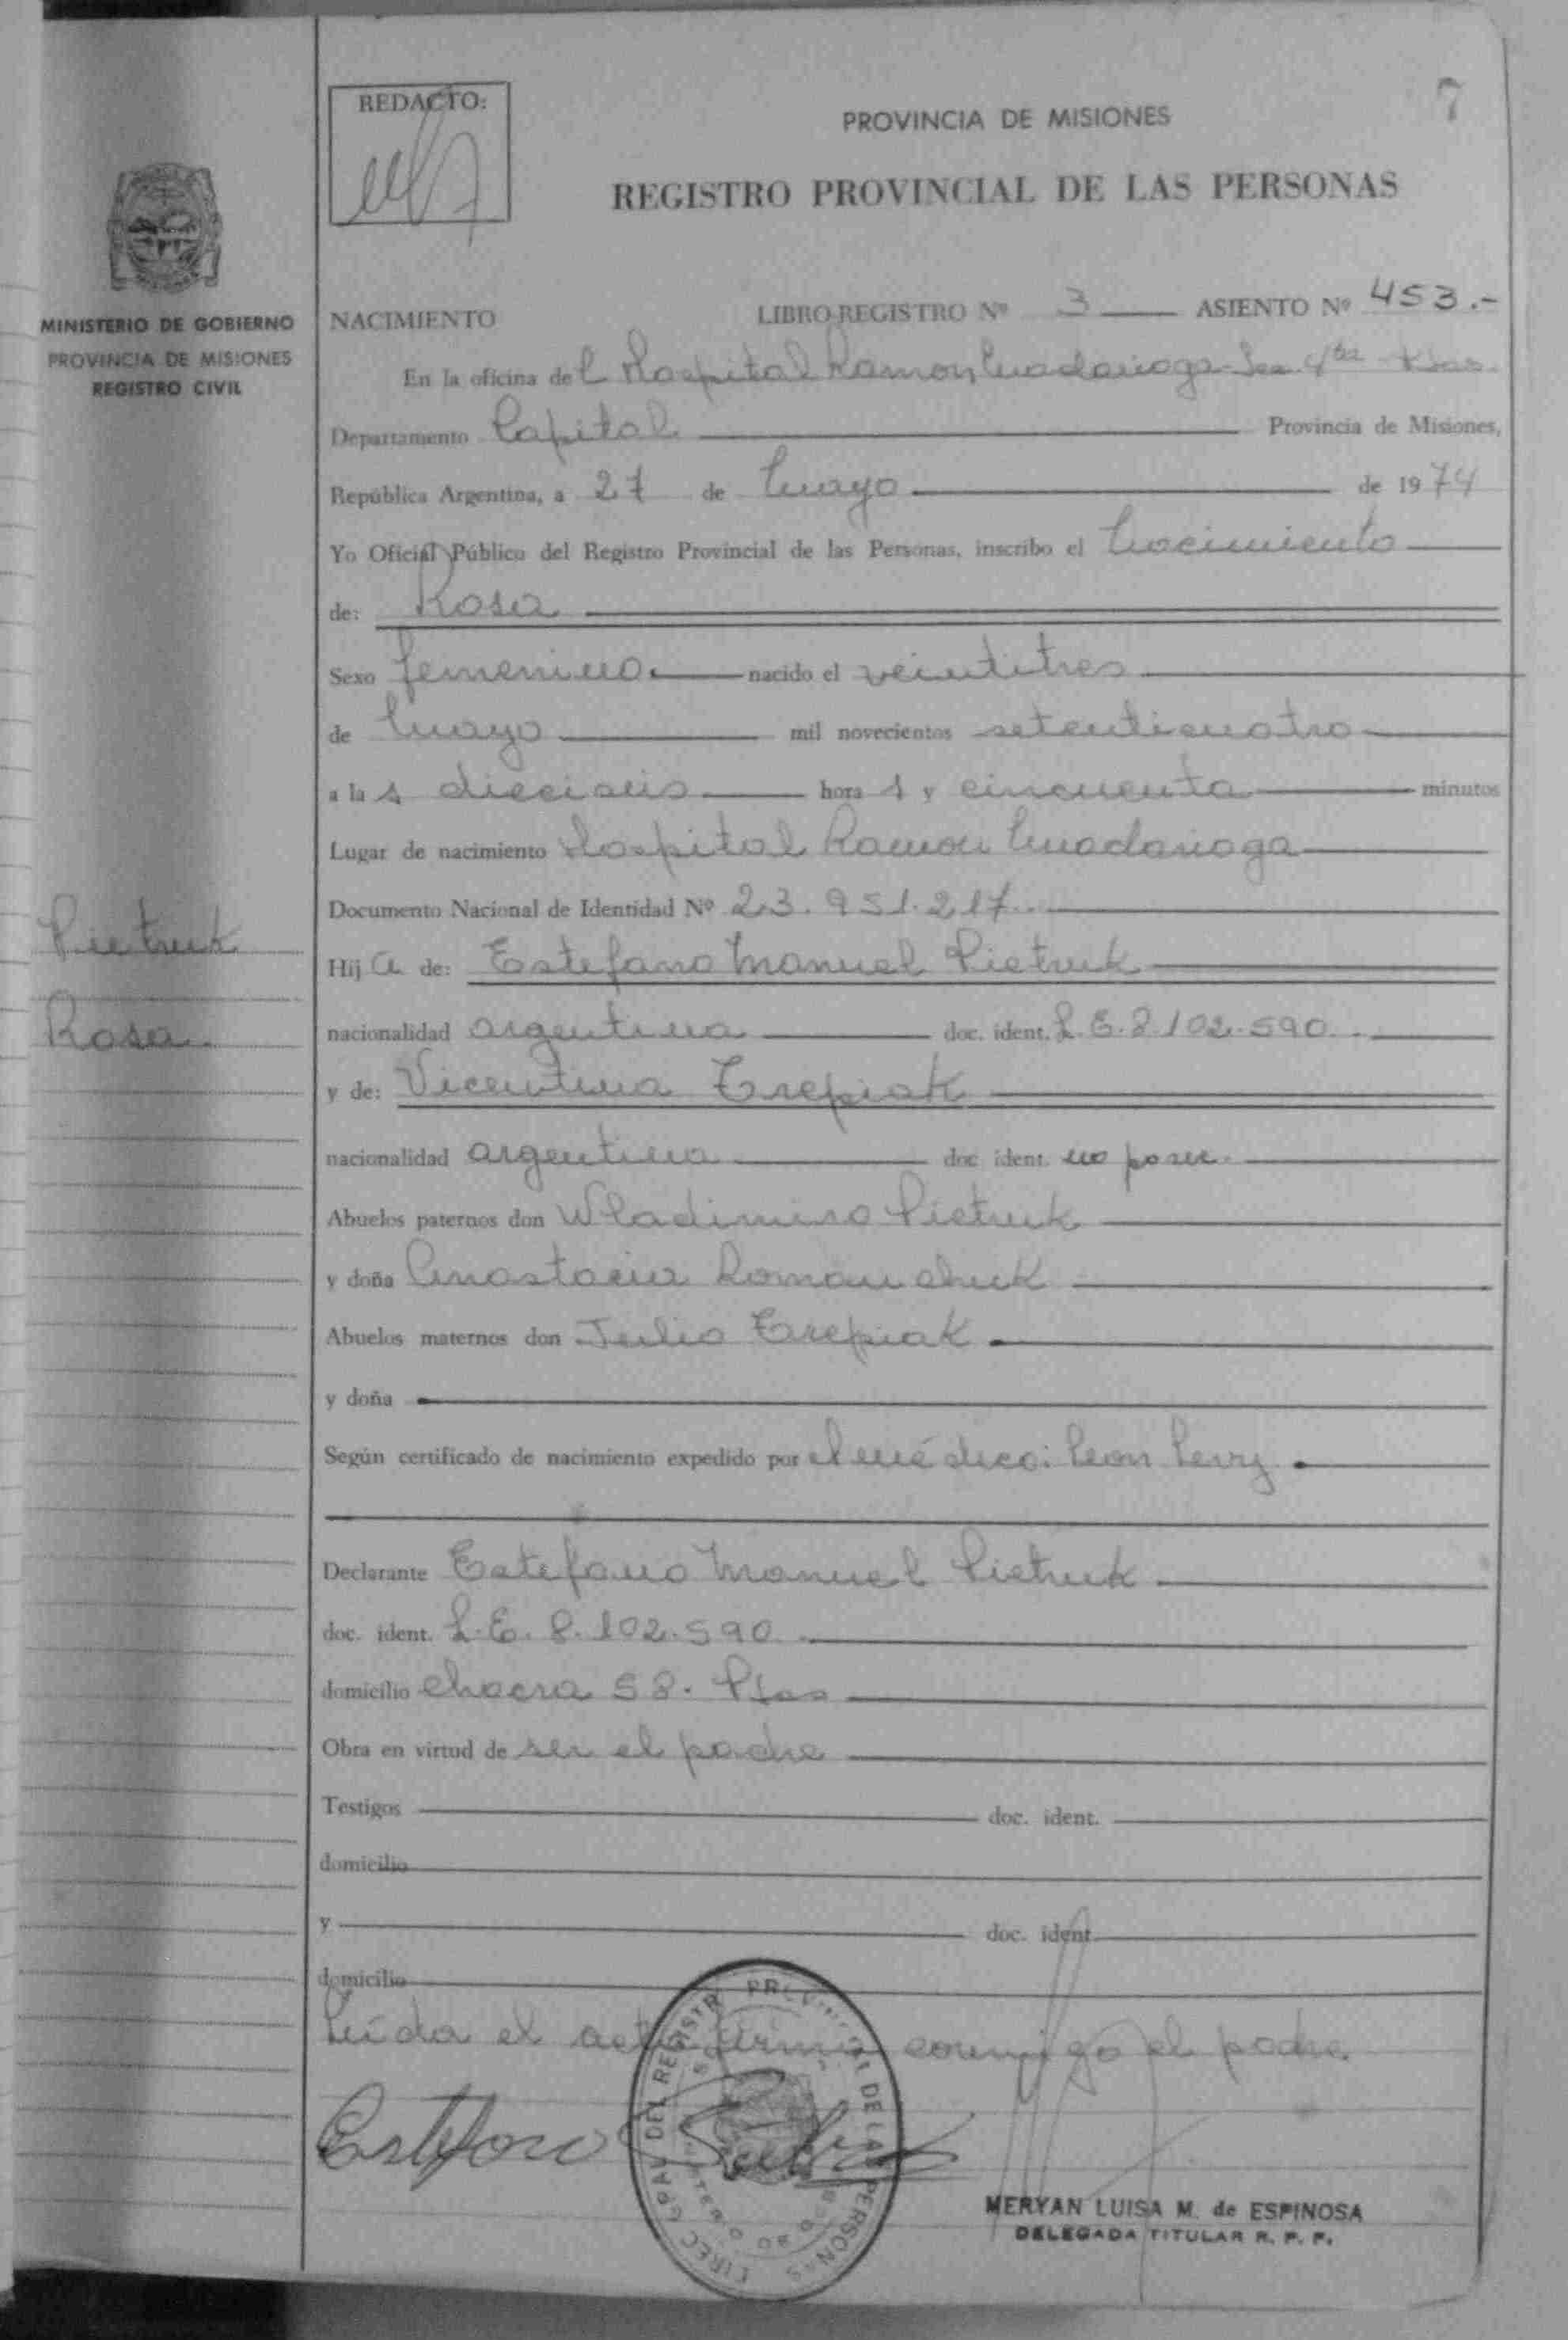 REDACTO:
7
PROVINCIA DE MISIONES
REGISTRO PROVINCIAL DE LAS PERSONAS
MINISTERIO DE GOBIERNO
PROVINCIA DE MISIONES
REGISTRO CIVIL
NACIMIENTO LIBRO REGISTRO Nº 3 ASIENTO Nº 453.-
En la oficina del Hospital Ramon Madariaga Sec 4ta
Departamento Capital Provincia de Misiones,
República Argentina, a 27 de Mayo de 1974
Yo Oficial Público del Registro Provincial de las Personas, inscribo el Nacimiento
de: Rosa
Sexo femenino nacido el veintitres
de Mayo mil novecientos setenticuatro
a las dieciseis horas y cincuenta minutos
Lugar de nacimiento Hospital Ramon Madariaga
Documento Nacional de Identidad Nº 23.951.217.
Pietruk
Hija de: Estefano Manuel Pietruk
Rosa.
nacionalidad argentina doc. ident. L.E. 8.102.590
y de: Vicentina Trepiak
nacionalidad argentina doc ident. no posee.
Abuelos paternos don Wladimiro Pietruk
y doña Anastacia Romanchuk
Abuelos maternos don Julio Trepiak
y doña
Según certificado de nacimiento expedido por el médico: Leon Levy
Declarante Estefano Manuel Pietruk
doc. ident. L.E. 8.102.590
domicilio chacra 58. Pdas
Obra en virtud de ser el padre
Testigos doc. ident.
domicilio
y doc. ident.
domicilio
Leída el acta firma conmigo el padre.
Estefano Pietruk
MERYAN LUISA M. de ESPINOSA
DELEGADA TITULAR R. P. P.